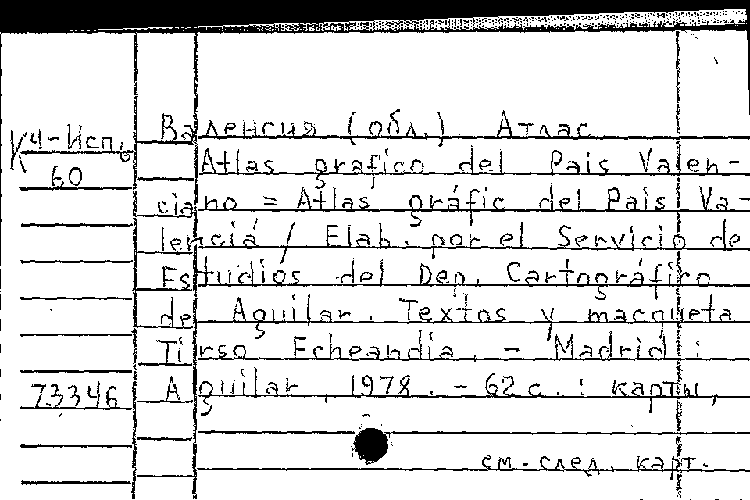 Валенсия (обл.) Атлас
Кч-Исп.
60
Atlas grafico del Pais Valen-
ciano = Atlas gráfic del Pais Va-
lenciá / Elab. por el Servicio de
Estudios del Dep. Cartográfiro
de Aguilar. Textos y macqueta
Tirso Echeandia. - Madrid :
Aguilar, 1978. - 62 с. : карты,
73346
см. след. карт.